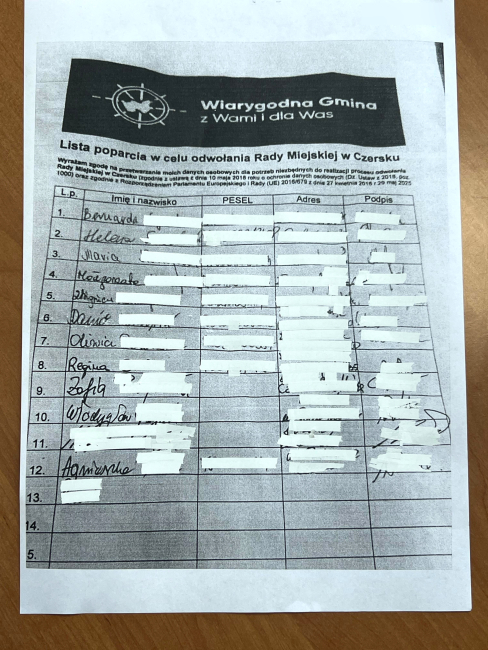 Wiarygodna Gmina
z Wami i dla Was
Lista poparcia w celu odwołania Rady Miejskiej w Czersku
Wyrażam zgodę na przetwarzanie moich danych osobowych dla potrzeb niezbędnych do realizacji procesu odwołania
Rady Miejskiej w Czersku (zgodnie z ustawą z dnia 10 maja 2018 roku o ochronie danych osobowych (Dz. Ustaw z 2018, poz.
1000) oraz zgodnie z Rozporządzeniem Parlamentu Europejskiego i Rady (UE) 2016/679 z dnia 27 kwietnia 2016
L.p. Imię i nazwisko PESEL Adres Podpis
1. Bernarda
2. Helena
3. Maria
4. Małgorzata
5. Zbigniew
6.
7. Oliwia
8. Regina
9. Zofia
10.
11.
12. Agnieszka
13.
14.
5.